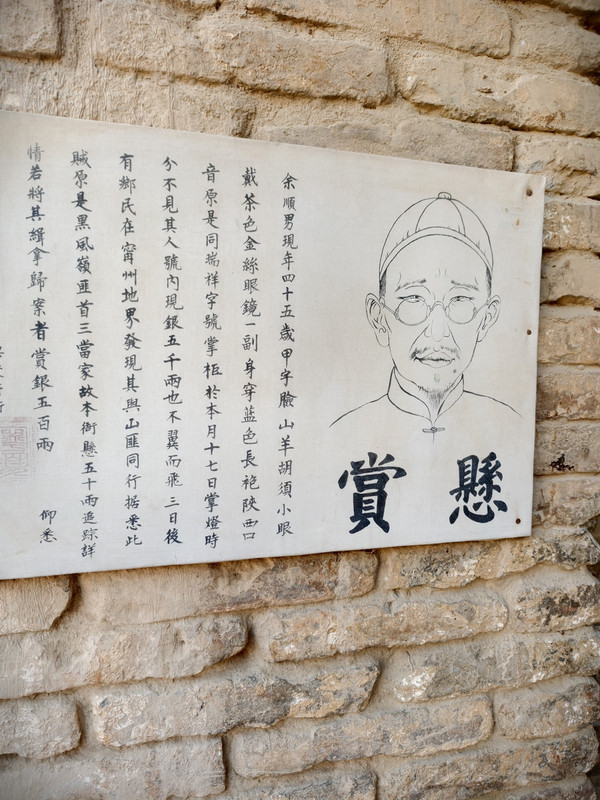 懸賞
余順男現年四十五歲甲字臉山羊胡須小眼
戴茶色金絲眼鏡一副身穿蓝色長袍陕西口
音原是同瑞祥字號掌柜於本月十七日掌燈時
分不見其人號內現銀五千兩也不翼而飛三日後
有鄉民在甯州地界發現其與山匪同行据悉此
賊原是黑風嶺匪首三當家故本衙懸五十兩追踪詳
情若將其緝拿歸案者賞銀五百兩
仰悉